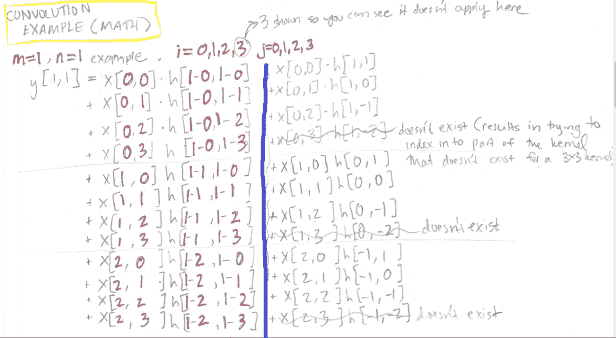 CONVOLUTION
EXAMPLE (MATH)
3 shown so you can see it doesn't apply here
m=1, n=1 example. i=0,1,2,3 j=0,1,2,3
y[1,1] = x[0,0]·h[1-0,1-0]
+ x[0,1]·h[1-0,1-1]
+ x[0,2]·h[1-0,1-2]
+ x[0,3]h[1-0,1-3]
+ x[1,0]h[1-1,1-0]
+ x[1,1]h[1-1,1-1]
+ x[1,2]h[1-1,1-2]
+ x[1,3]h[1-1,1-3]
+ x[2,0]h[1-2,1-0]
+ x[2,1]h[1-2,1-1]
+ x[2,2]h[1-2,1-2]
+ x[2,3]h[1-2,1-3]
x[0,0]·h[1,1]
+x[0,1]·h[1,0]
+x[0,2]·h[1,-1]
+x[0,3]h[1,-2] doesn't exist (results in trying to
index into part of the kernel
that doesn't exist for a 3x3 kernel
+x[1,0]h[0,1]
+x[1,1]h[0,0]
+x[1,2]h[0,-1]
+x[1,3]h[0,-2] doesn't exist
+x[2,0]h[-1,1]
+x[2,1]h[-1,0]
+x[2,2]h[-1,-1]
+x[2,3]h[-1,-2] doesn't exist